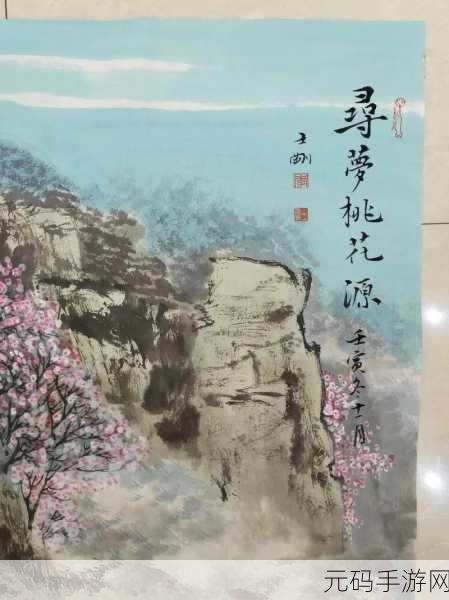 尋夢桃花源
壬寅冬十一月
士刚
元码手游网